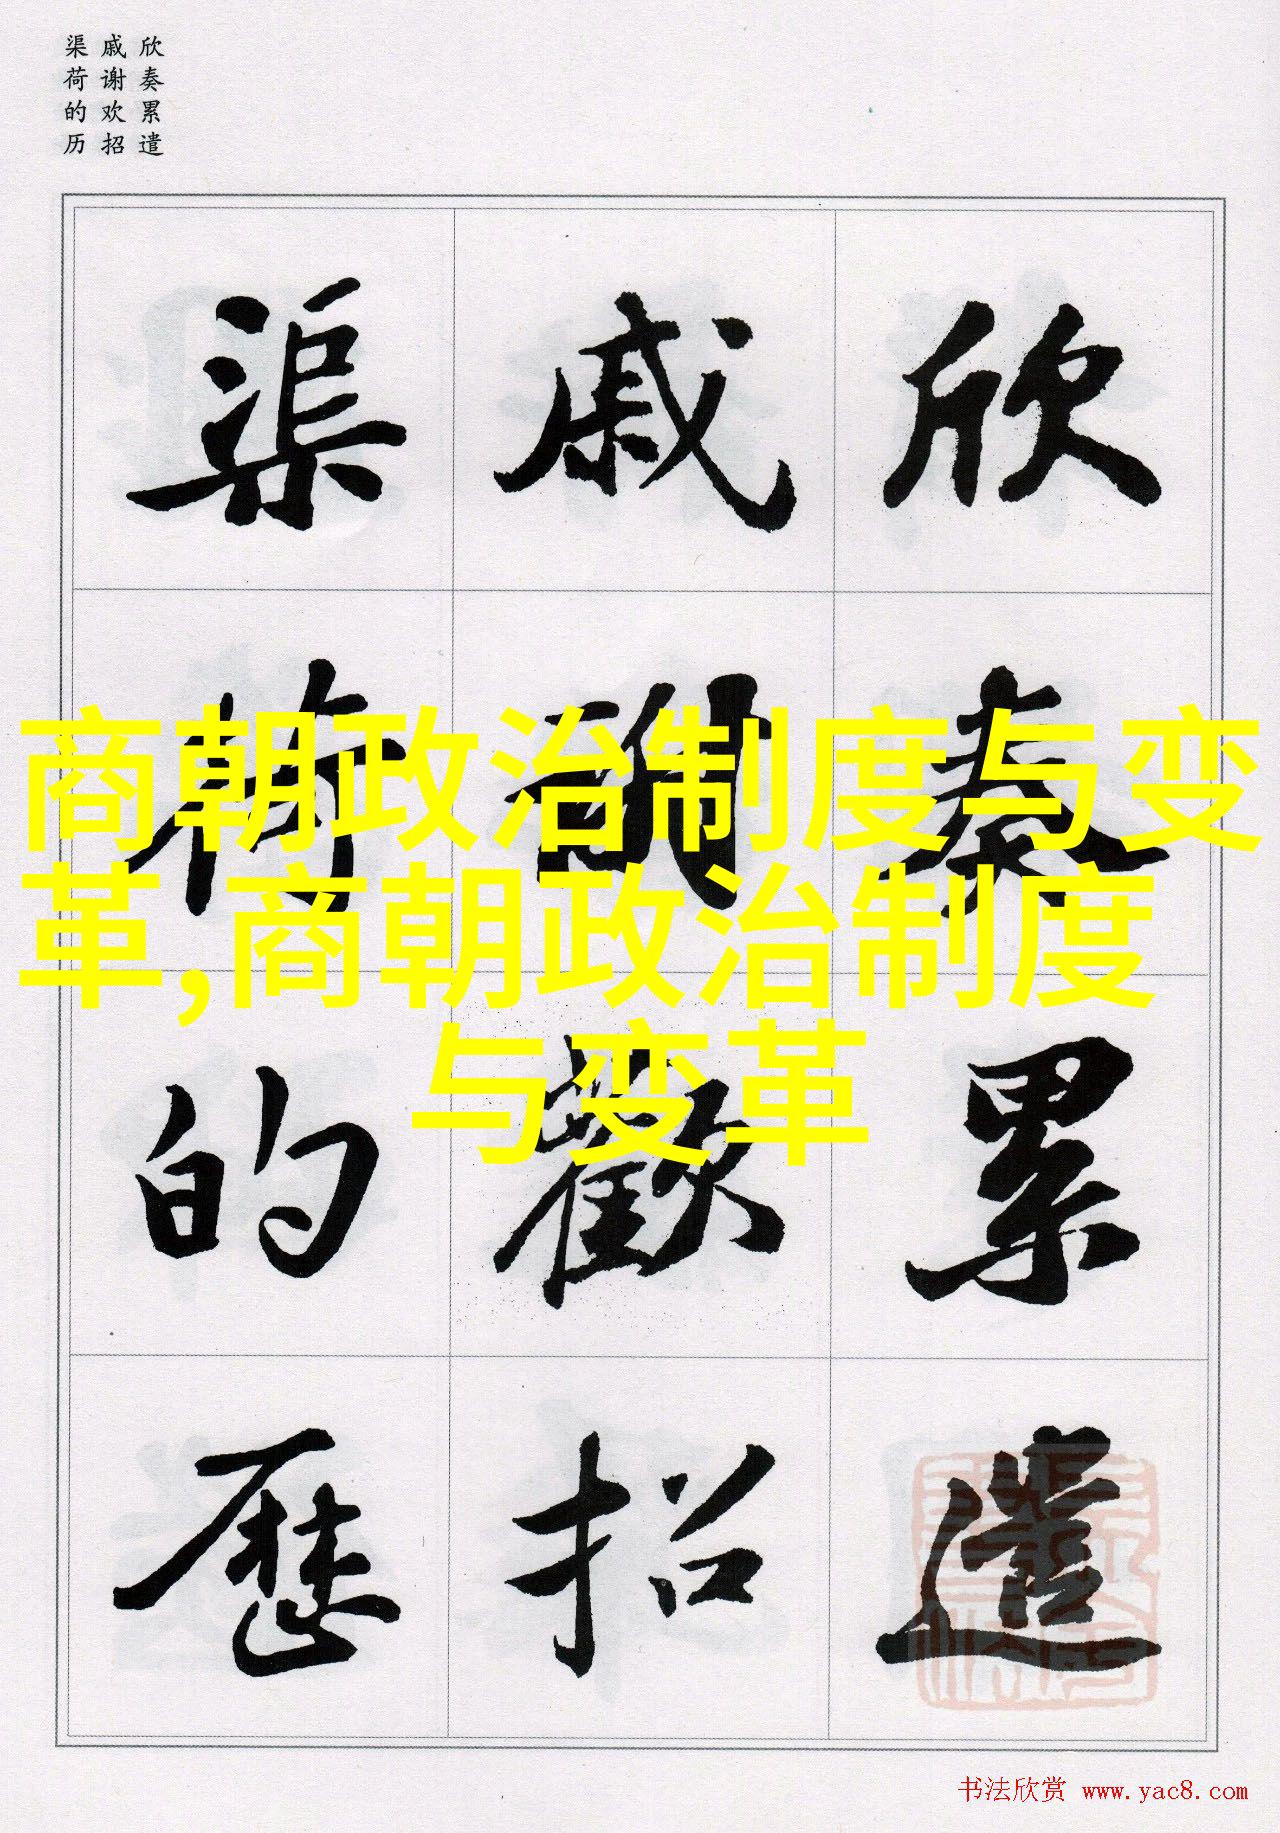 欣奏累遣
戚谢欢招
渠荷的历
欣奏累遣
戚謝歡招
渠荷的歷
商朝政治制度与变
革,商朝政治制度
与变革
书法欣赏 www.yac8.com